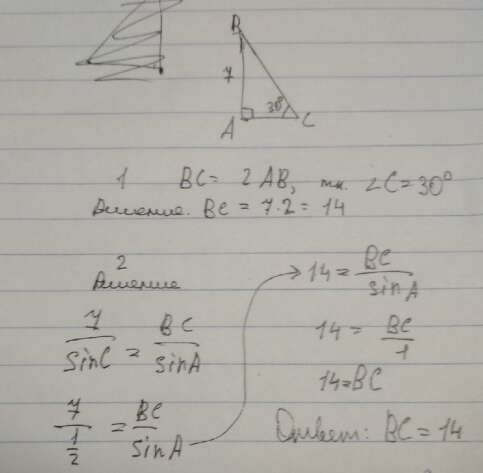 B
7
30°
A C
1 BC = 2AB, т.к. ∠C = 30°
Решение. BC = 7·2 = 14
2
Решение
7/SinC = BC/SinA
7/(1/2) = BC/SinA
14 = BC/sinA
14 = BC/1
14=BC
Ответ: BC = 14